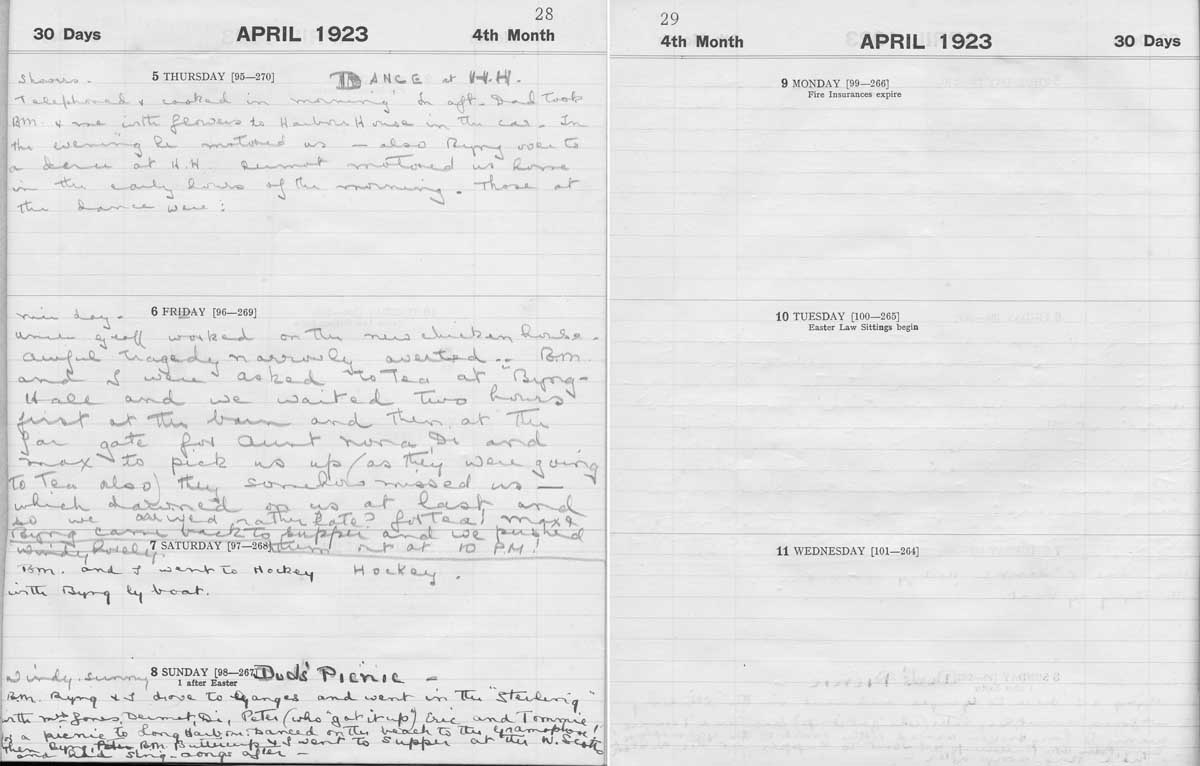 28
30 Days APRIL 1923 4th Month
5 THURSDAY [95—270]
Showers. DANCE at H.H.
Telephoned & cooked in morning In aft. Dad took
BM. & me with flowers to Harbour House in the car. In
the evening he motored us — also Byng over to
a dance at H.H. Dermot motored us home
in the early hours of the morning. Those at
the dance were:
6 FRIDAY [96—269]
nice day.
Uncle Geoff worked on the new chicken house.
awful tragedy narrowly averted .. BM.
and I were asked to Tea at "Byng-
Hall and we waited two hours
first at the barn and then at the
far gate for Aunt Nora Di and
max to pick us up (as they were going
to Tea also) they somehow missed us —
which dawned on us at last and
so we arrived rather late for tea! Max &
Byng came back to supper and we pushed
them out at 10 PM.
7 SATURDAY [97—268]
windy
BM. and I went to Hockey Hockey.
with Byng by boat.
8 SUNDAY [98—267] Dud's Picnic —
1 after Easter
Windy. sunny
BM. Byng & I drove to Ganges and went in the "Sterling"
with Mrs Jones, Dermot, Di, Peter (who "got it up") Eric and Tommie
a picnic to Long Harbour. Danced on the beach to the gramophone!
Then Byng, Peter BM. Buttercup & I went to supper at the W. Scotts
and had sing-songs after —
29
4th Month APRIL 1923 30 Days
9 MONDAY [99—266]
Fire Insurances expire
10 TUESDAY [100—265]
Easter Law Sittings begin
11 WEDNESDAY [101—264]